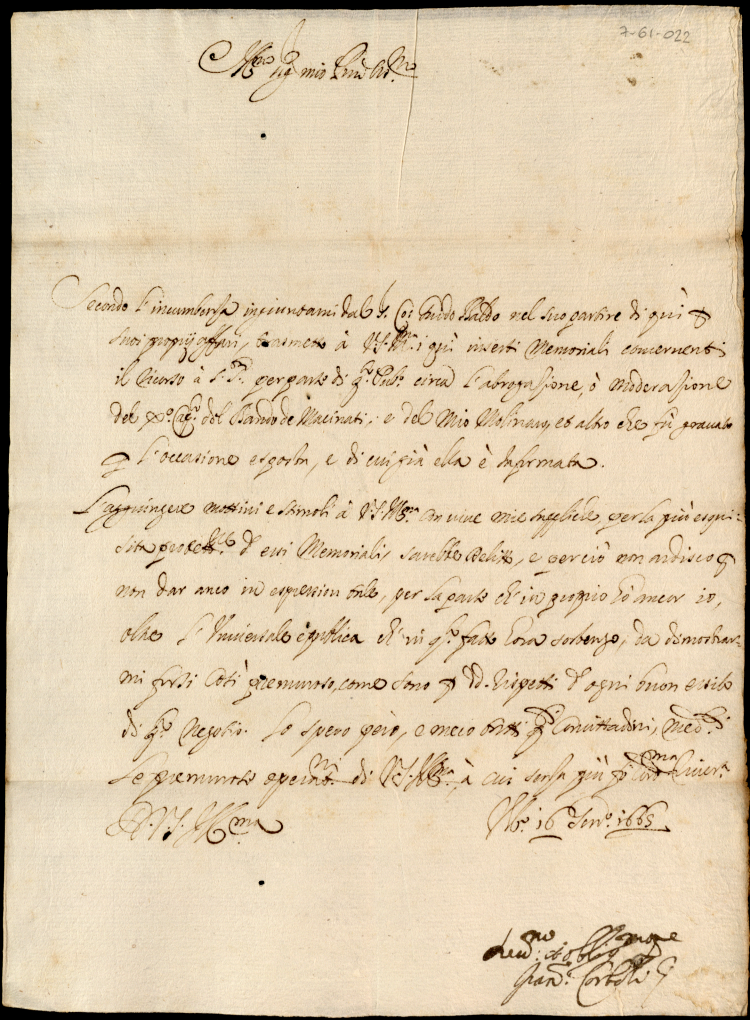 7-61-022
Ill.mo Sig.r mio Pron Col.mo
Secondo l'incumbenza ingiuntami dal S. Co: Guido Baldo nel suo partire di quì p
suoi proprij affari, trasmetto à V.S. Ill.ma i quì inserti Memoriali concernenti
il ricorso à S. S.tà per parte di q.o Pub.o circa l'abrogazione, ò moderazione
del X.o Cap.o del Bando de Macinati, e del Mio Molinaro, et altro che fù gravato
p l'occasione esposta, e di cui già ella è informata.
L'aggiungere mottivi e stimoli à V.S. Ill.ma con vive mie suppliche per la più esqui-
sita protett.ne d'essi Memoriali, sarebbe delitto, e perciò non ardisco p
non dar anco in espressioni, per la parte ch'in proprio hò ancor io,
oltre l'Universale e publica ch'in q.o fatto hora sostengo, da dimostrar-
mi forsi così premuroso, come sono p dd. rispetti d'ogni buon esito
di q.o negotio. Io spero però, e meco tutti q.i Concittadini,
le premurose di V.S. Ill.ma, à cui senza più fò hum.ma river.a
D. V. S. Ill.ma
16 Gen.o 1665
Dev.mo et oblig.mo
Fran.o